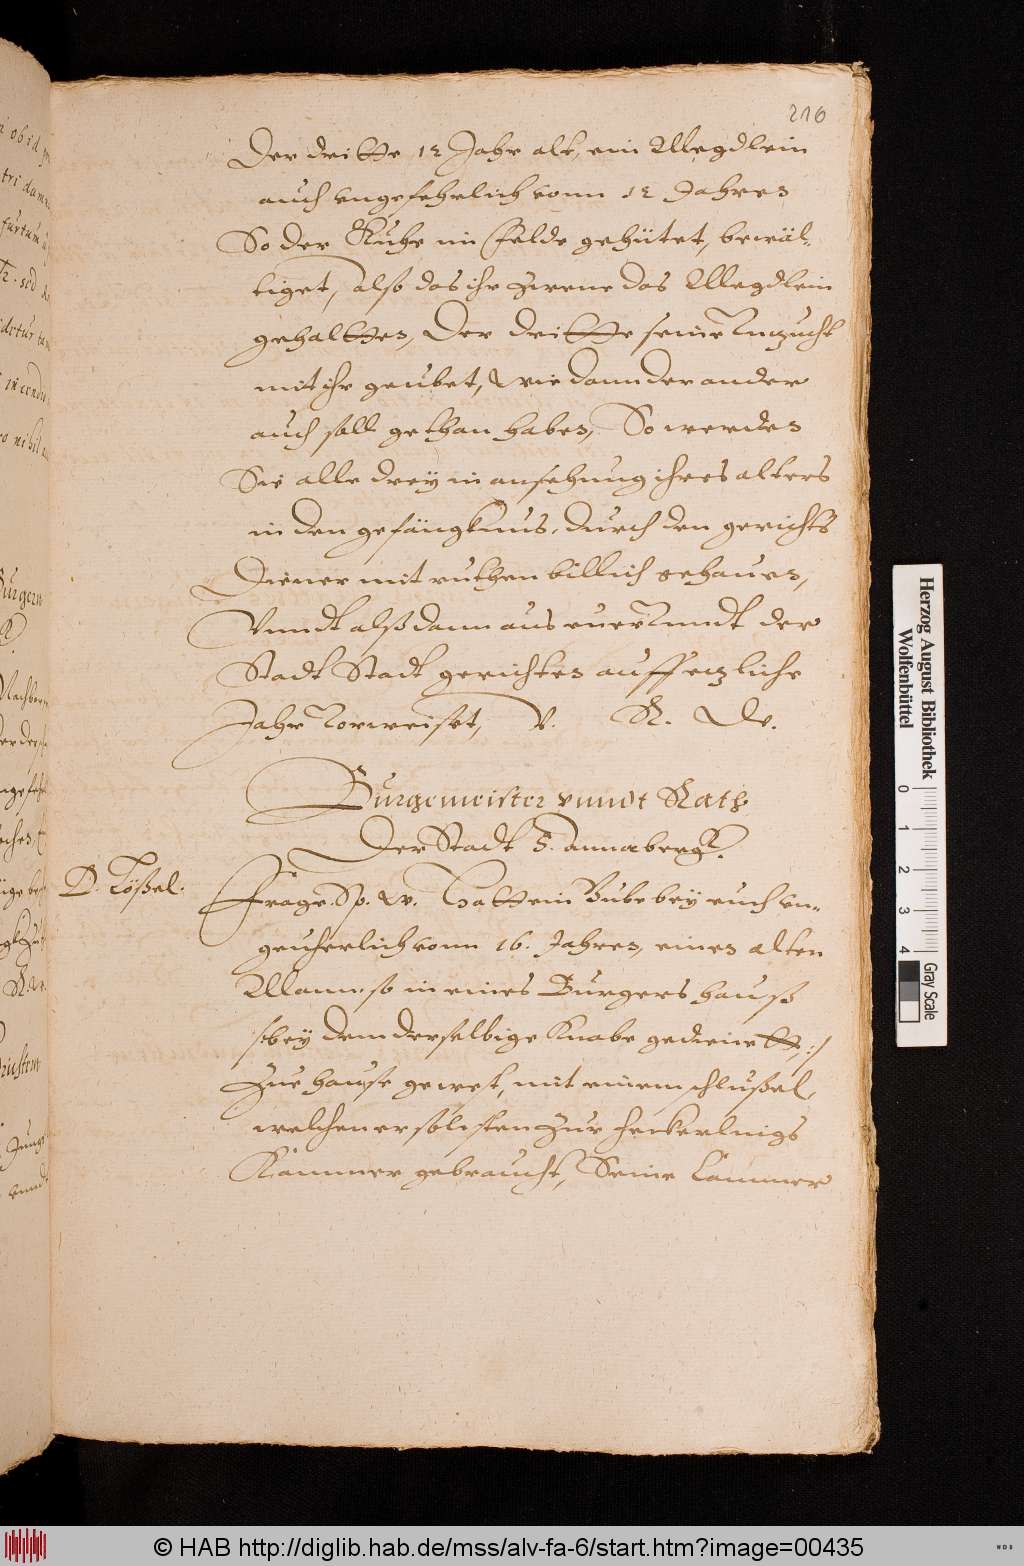 216
Der dritte 12 Jahr alt, ein Megdlein
auch vngefehrlich vonn 12 Jahren
So der Kuhe im felde gehütet, bewäl-
tiget, also das ihr zwene das Megdlein
gehaltten, Der dritte seine Vnzucht
mit ihr geubet, wie dann der ander
auch soll gethan haben, So werden
Sie alle drey in ansehung ihres alters
in den gefängknus, durch den gerichts
Diener mit ruthen billich gehauen,
Vnndt alßdann aus euer Vnndt der
Stadt Stadt gerichten auff etzliche
Jahr Vorweiset, V. R. W.
Burgemeister vnndt Rath
Der Stadt S. Annabergk.
D. Rößel.
Frage. Sp. w. Hatt ein Bube bey euch vn-
geuherlich vonn 16. Jahren, einen alten
Mann so in eines Burgers hauß
/:bey dem derselbige Knabe gedienett,:/
Zue hause gewest, mit einem schlußel,
welchen er sölchen Zur heckerlings
Kammer gebraucht, Seine Cammer
Herzog August Bibliothek
Wolfenbüttel
0 1 2 3 4
Gray Scale
© HAB http://diglib.hab.de/mss/alv-fa-6/start.htm?image=00435
WDB